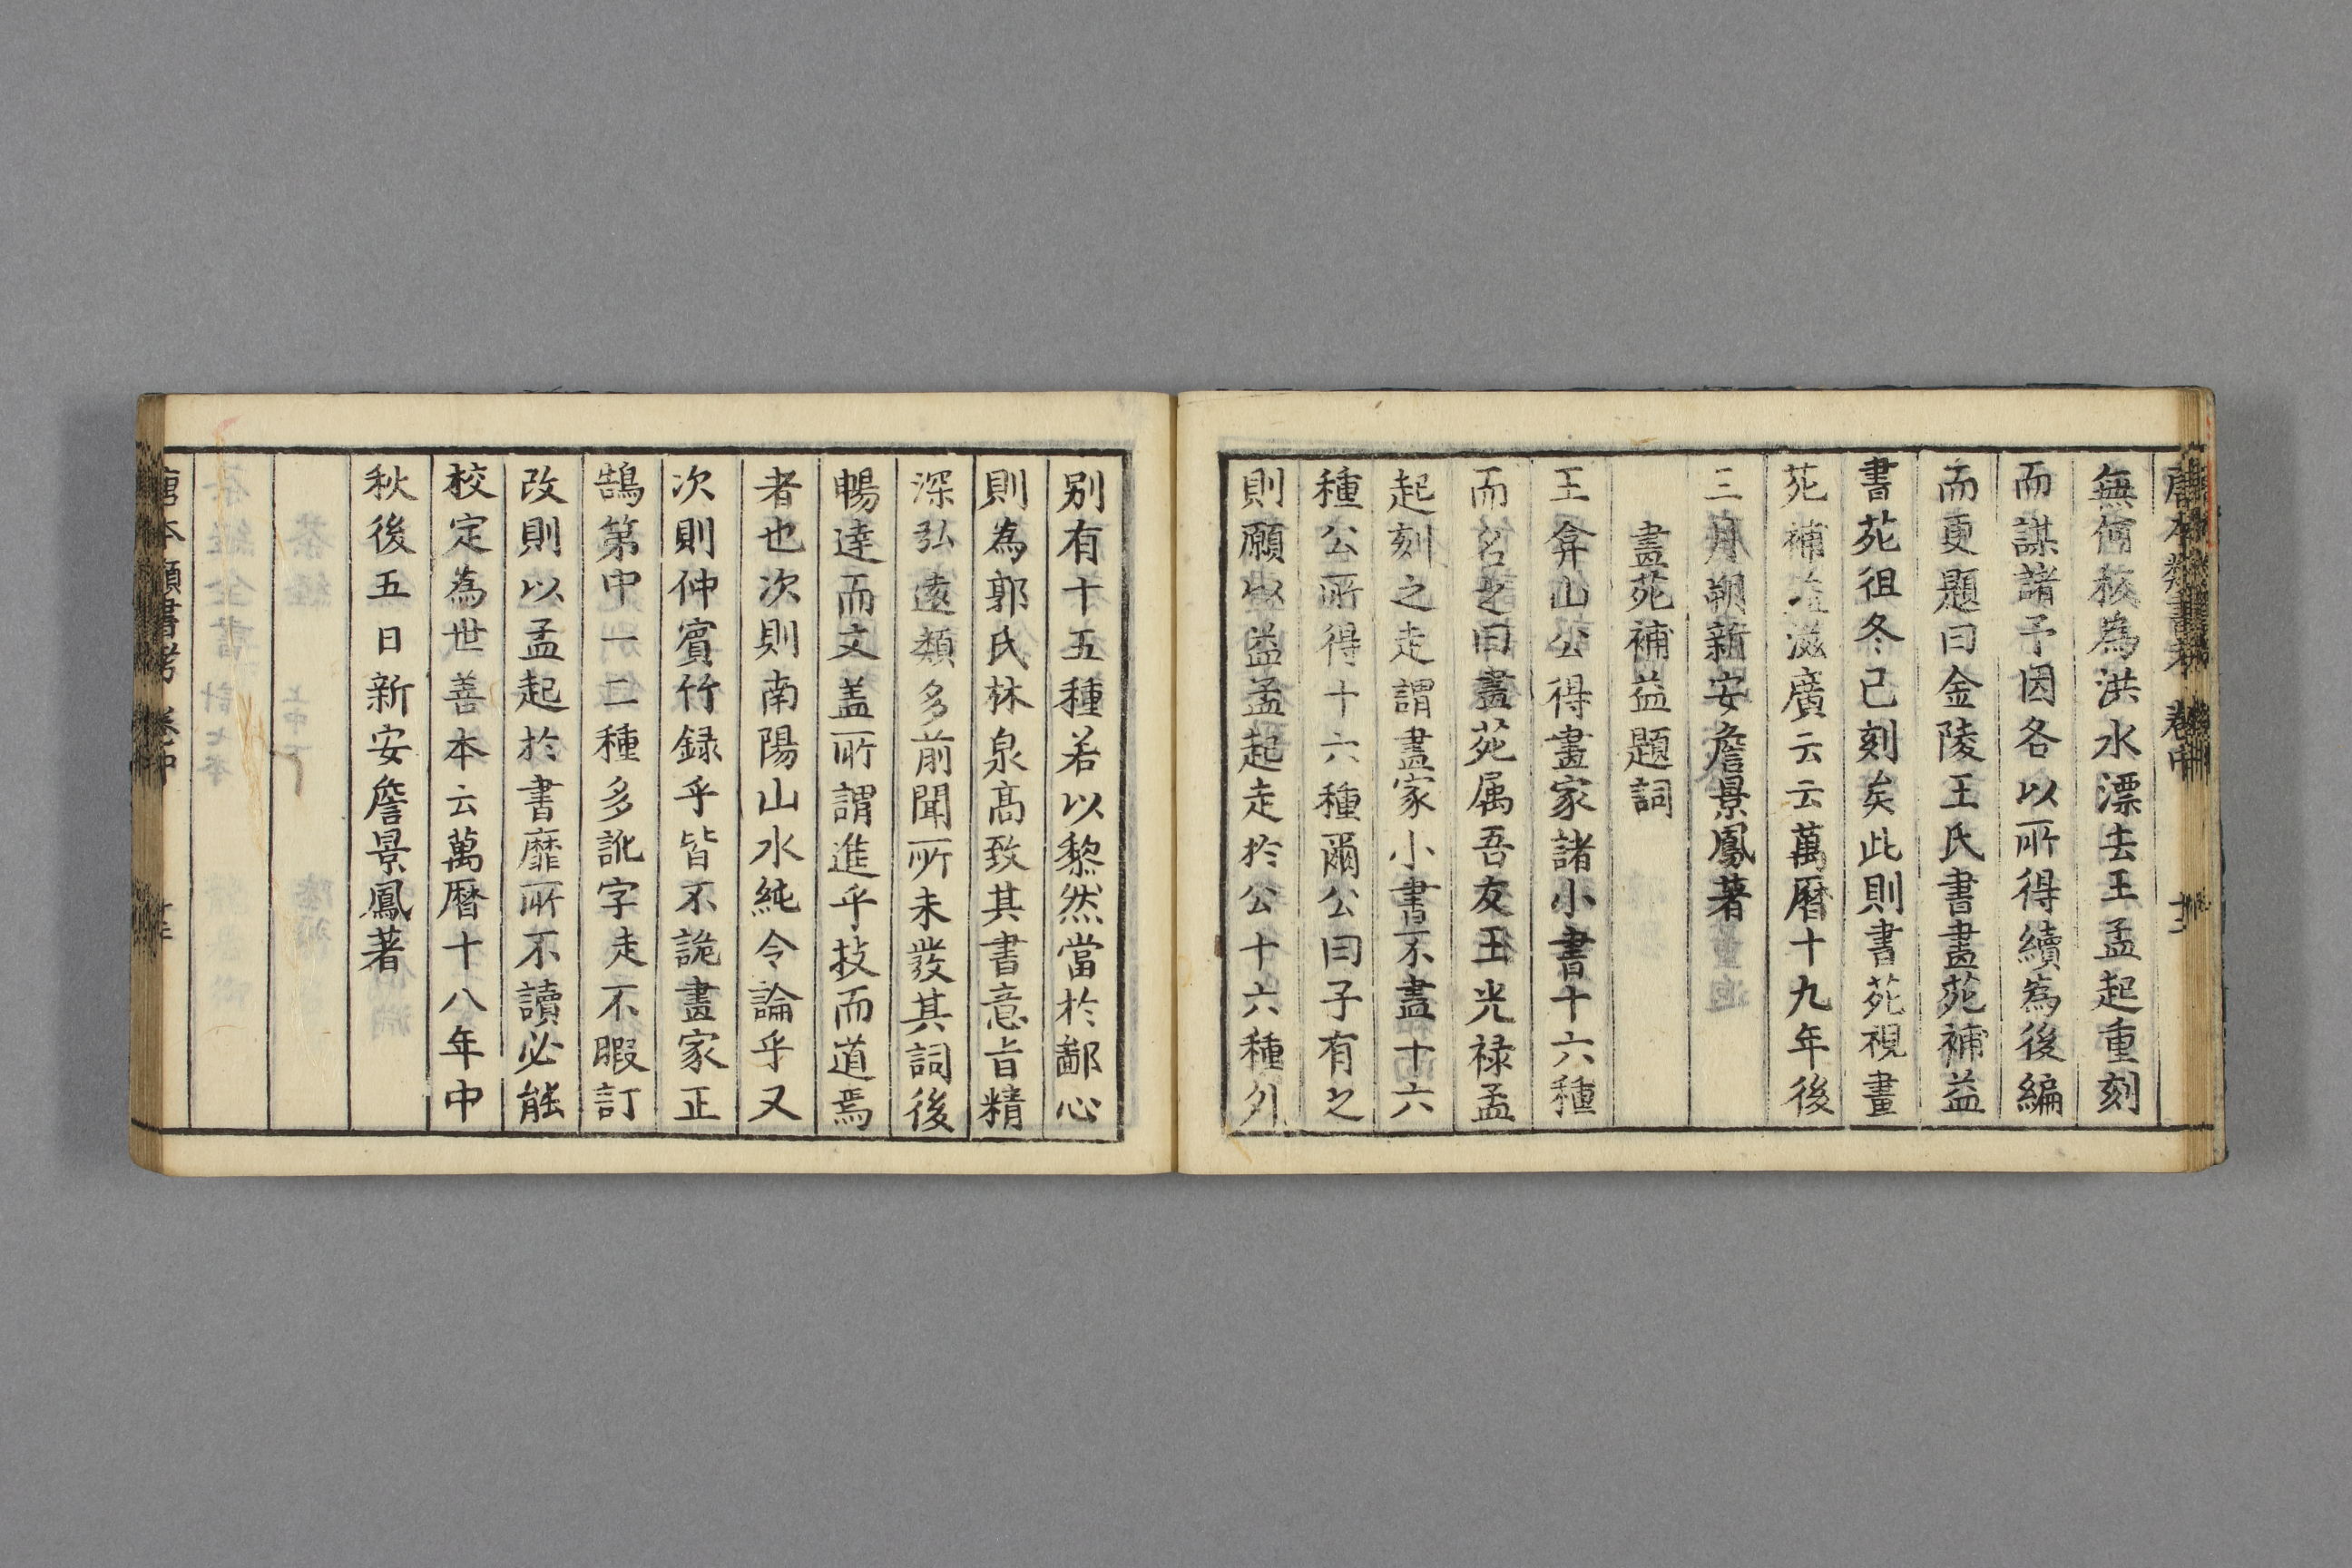 唐本類書考 卷中
無何板為洪水漂去王孟起重刻
而謀諸予因各以所得續為後編
而更題曰金陵王氏書畫苑補益
書苑徂冬已刻矣此則書苑視畫
苑補益滋廣云云萬曆十九年後
三月朔新安詹景鳳著
畫苑補益題詞
王弇山公得畫家諸小書十六種
而名之曰畫苑属吾友王光禄孟
起刻之走謂畫家小書不盡十六
種公所得十六種爾公曰子有之
則願以益孟起走於公十六種外
别有十五種若以黎然當於鄙心
則為郭氏林泉高致其書意旨精
深弘遠類多前聞所未發其詞後
暢達而文盖所謂進乎技而道焉
者也次則南陽山水純令論乎又
次則仲賓竹録乎皆不詭畫家正
鵠第中一二種多訛字走不暇訂
改則以孟起於書靡所不讀必能
校定為世善本云萬曆十八年中
秋後五日新安詹景鳳著
唐本類書考 卷中